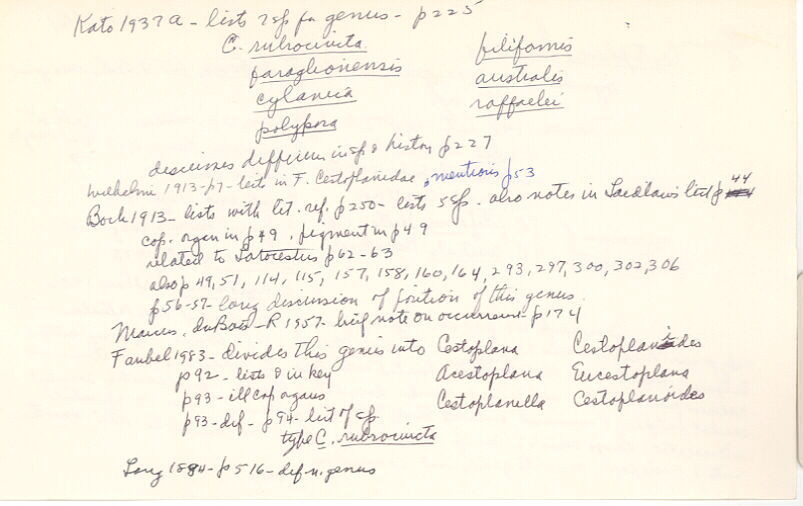 Kato 1937a - lists 7 sp for genus - p225
C. rubrocincta filiformis
faraglionensis australis
ceylanica raffaelei
polypora
discusses differences in sp & histor p227
Wilhelmi 1913-p7- lists in F. Cestoplanidae, mentions p53
Bock 1913- lists with lit. ref. p250- lists 5 sp. also notes in Laidlaws list p 44
cop. organ in p49, pigment in p49
related to Latocestus p62-63
also p 49, 51, 114, 115, 157, 158, 160, 164, 293, 297, 300, 302, 306
p56-57- long discussion of position of this genus.
Marcus, duBois-R 1957- brief note on occurrance- p174
Faubel 1983- divides this genus into Cestoplana Cestoplanoides
p92- lists & in key Acestoplana Eucestoplana
p93- ill cop organs Cestoplanella Cestoplanoides
p93-def- p94- list of sp
type C. rubrocincta
Lang 1884- p516- def. n. genus